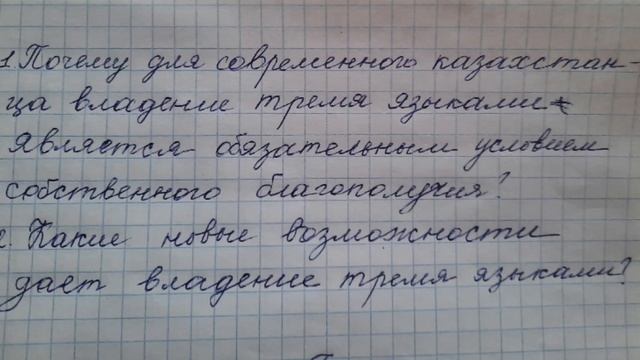 1. Почему для современного казахстан-
ца владение тремя языками
является обязательным условием
собственного благополучия?
2. Какие новые возможности
дает владение тремя языками?